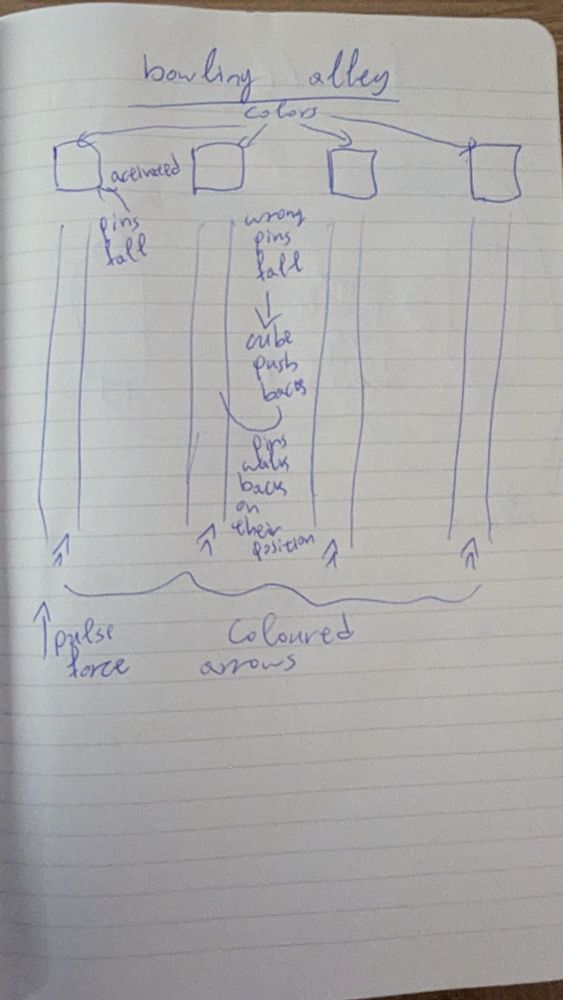 bowling alley
colors
activated
pins
fall
wrong
pins
fall
cube
push
back
pins
walk
back
on
their
position
pulse
force
Coloured
arrows